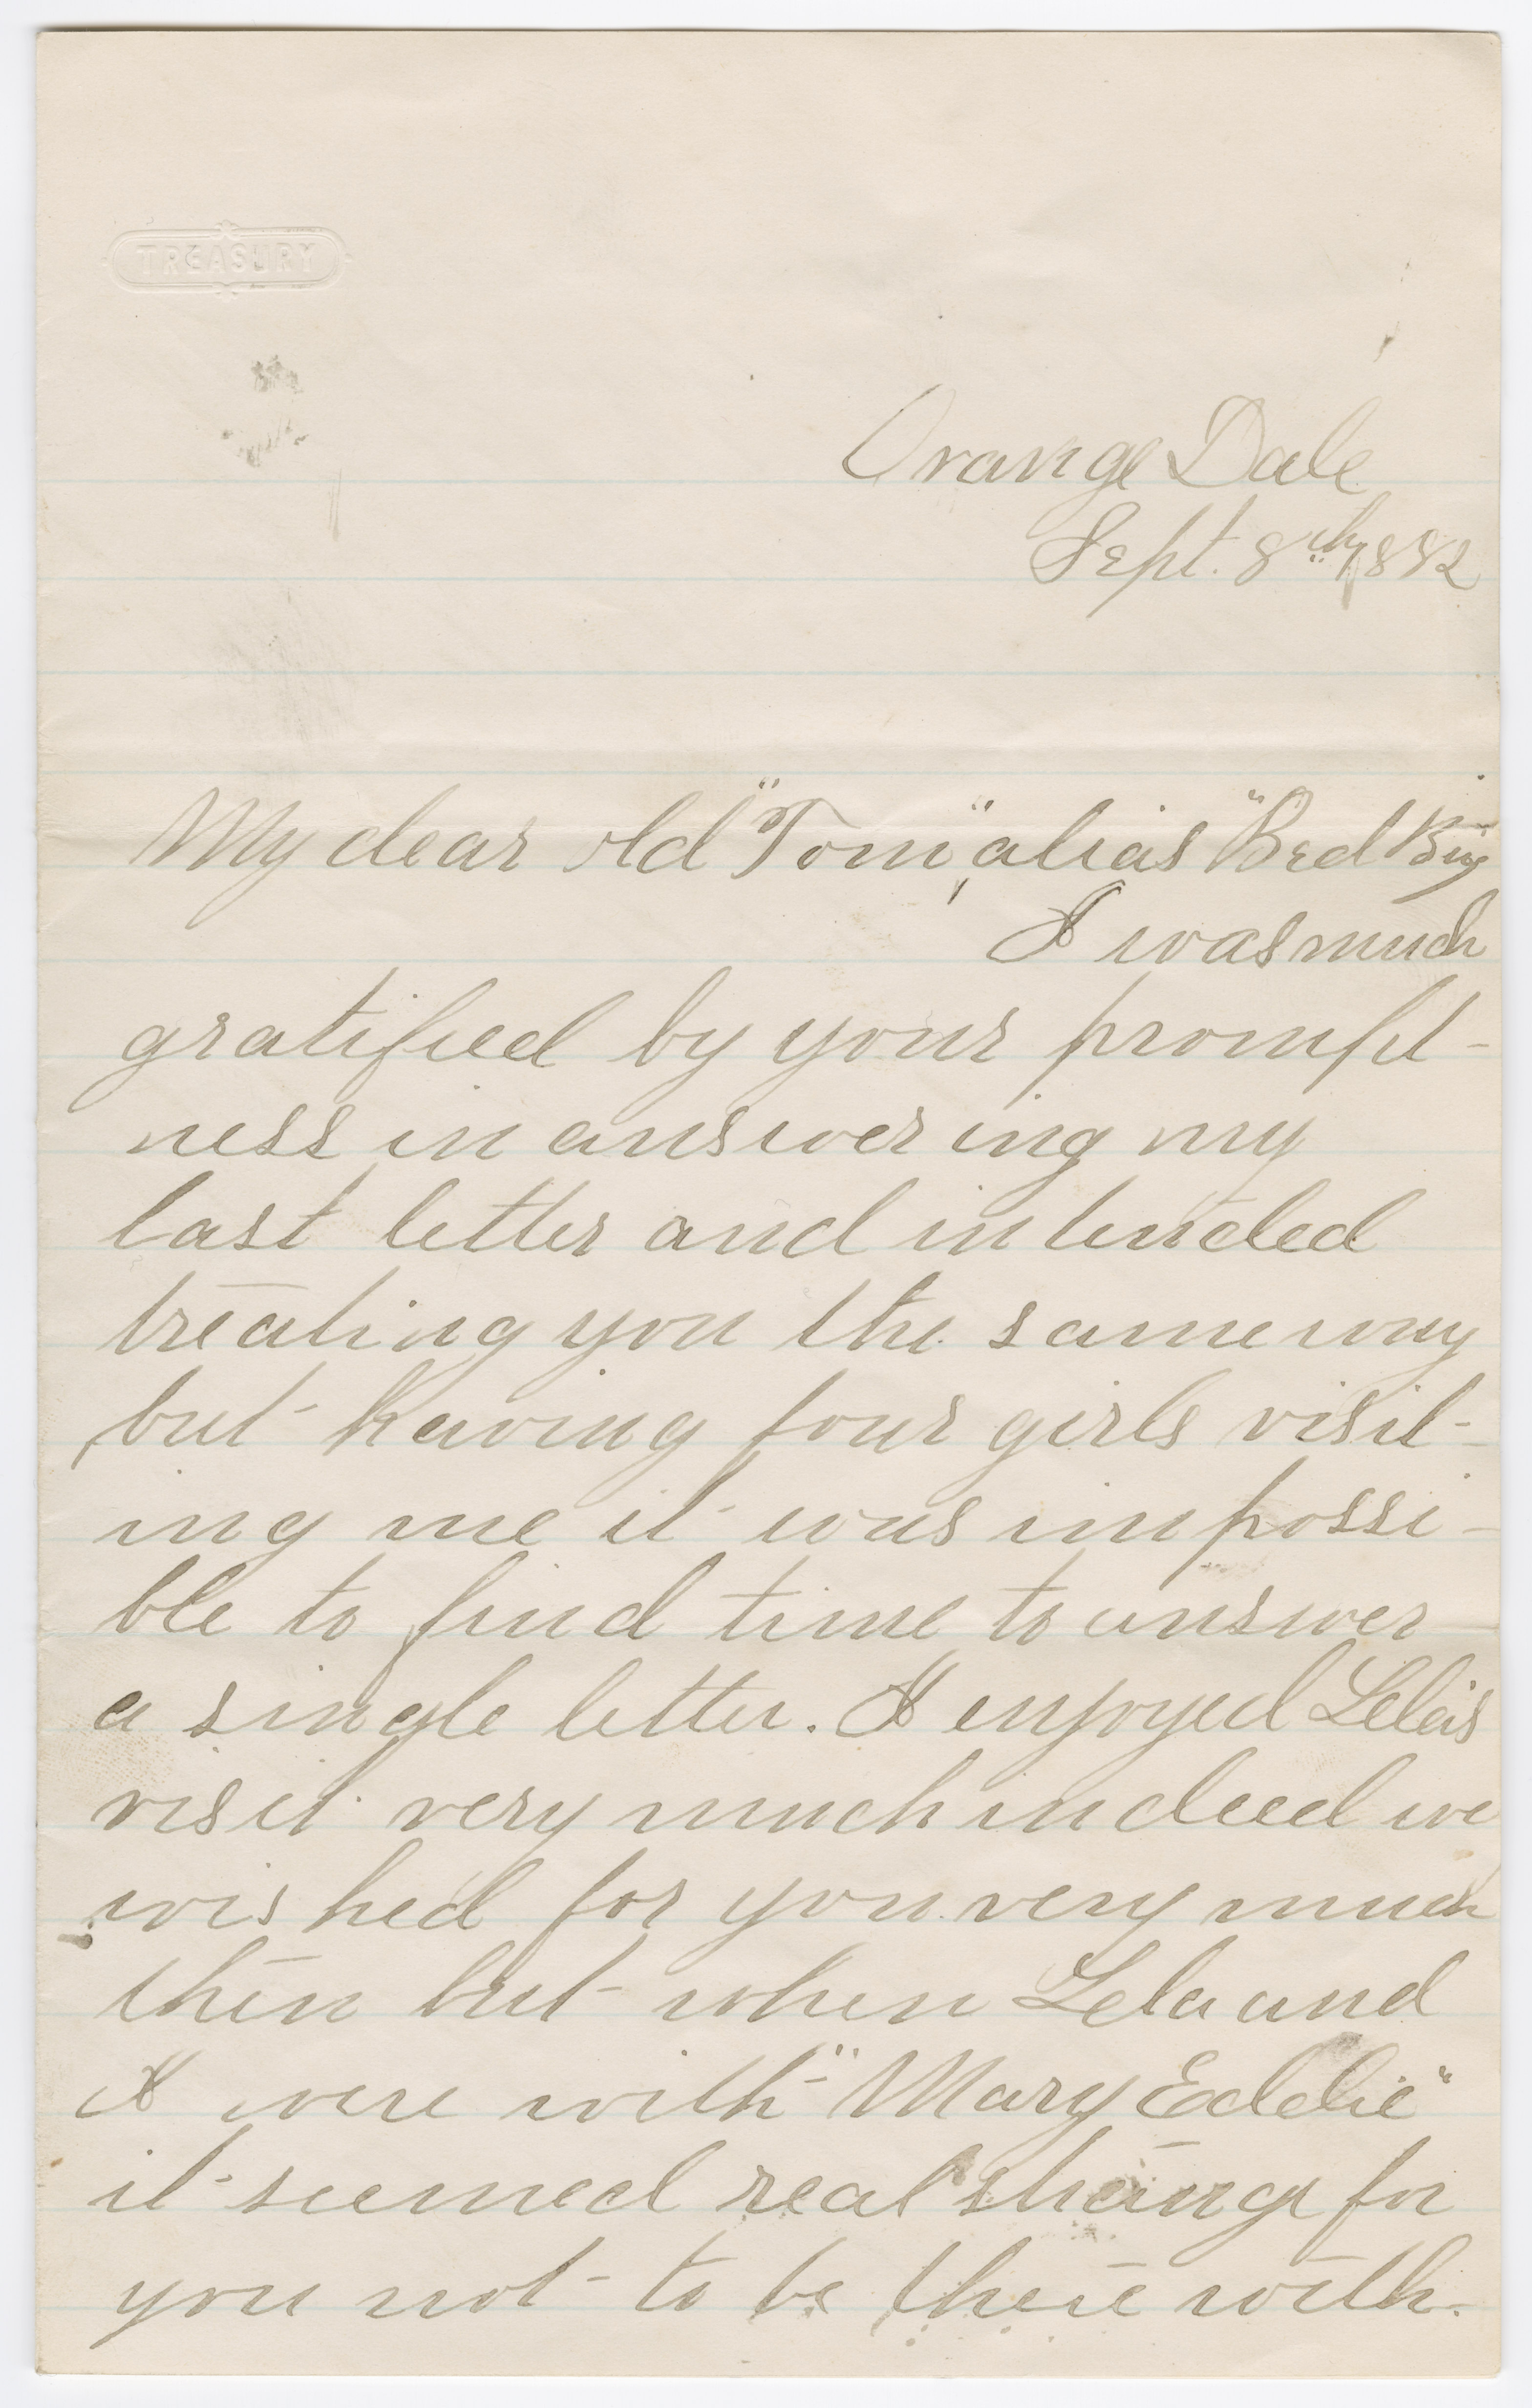 TREASURY
Orange Dale
Sept. 8th 1882
My dear old "Tom", alias "Bed Bug
I was much
gratified by your prompt-
ness in answering my
last letter and intended
treating you the same way
but having four girls visit-
ing me it was impossi-
ble to find time to answer
a single letter. I enjoyed Lela's
visit very much indeed we
wished for you very much
then but when Lela and
I were with "Mary Eddie"
it seemed real strange for
you not to be there with.